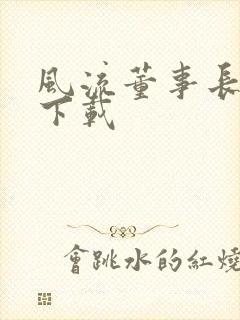 風流董事長
下載
會跳水的紅燒